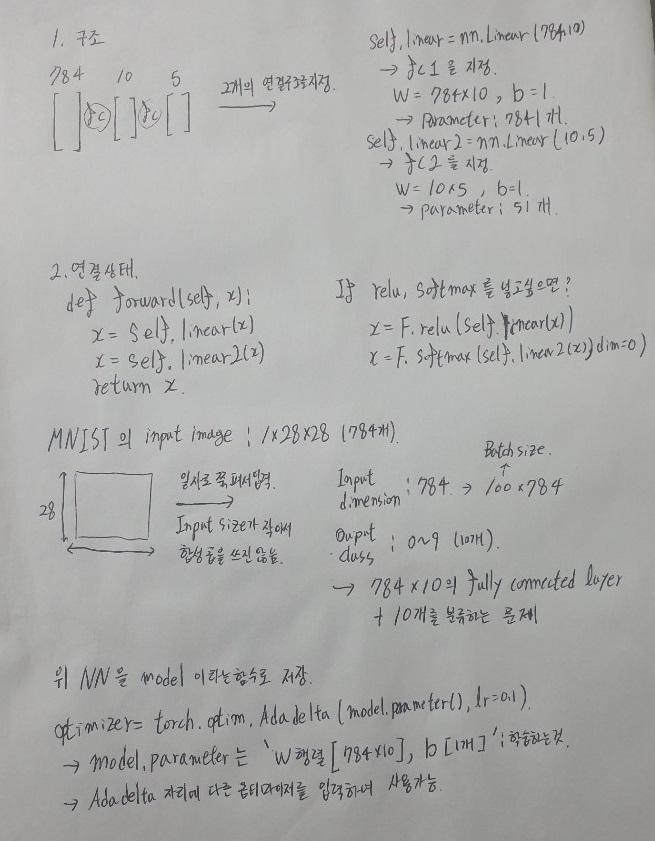 1. 구조
784 10 5
[ ] fc [ ] fc [ ] 2개의 연결구조를 지정.
self.linear = nn.Linear(784.10)
→ fc1 을 지정.
W = 784×10 , b=1.
→ Parameter : 7841개.
self.linear2 = nn.Linear(10.5)
→ fc2 를 지정
W = 10×5 , b=1.
→ parameter : 51개.
2. 연결상태.
def forward(self, x):
x = self.linear(x)
x = self.linear2(x)
return x.
If relu, softmax 를 넣고싶으면?
x = F.relu(self.linear(x))
x = F.softmax(self.linear2(x), dim=0)
MNIST 의 input image : 1×28×28 (784개).
28
일자로 쭉펴서입력.
→
Input size가 작아서
합성곱을 쓰진 않음.
Batch size.
↑
Input dimension : 784. → 100×784
Ouput class : 0~9 (10개).
→ 784×10의 fully connected layer
+ 10개를 분류하는 문제
위 NN을 model 이라는함수로 저장.
optimizer= torch.optim.Adadelta(model.parameter(), lr=0.1).
→ model.parameter는 'W행렬[784×10], b[1개]' ; 학습하는것.
→ Adadelta 자리에 다른 옵티마이저를 입력하여 사용가능.